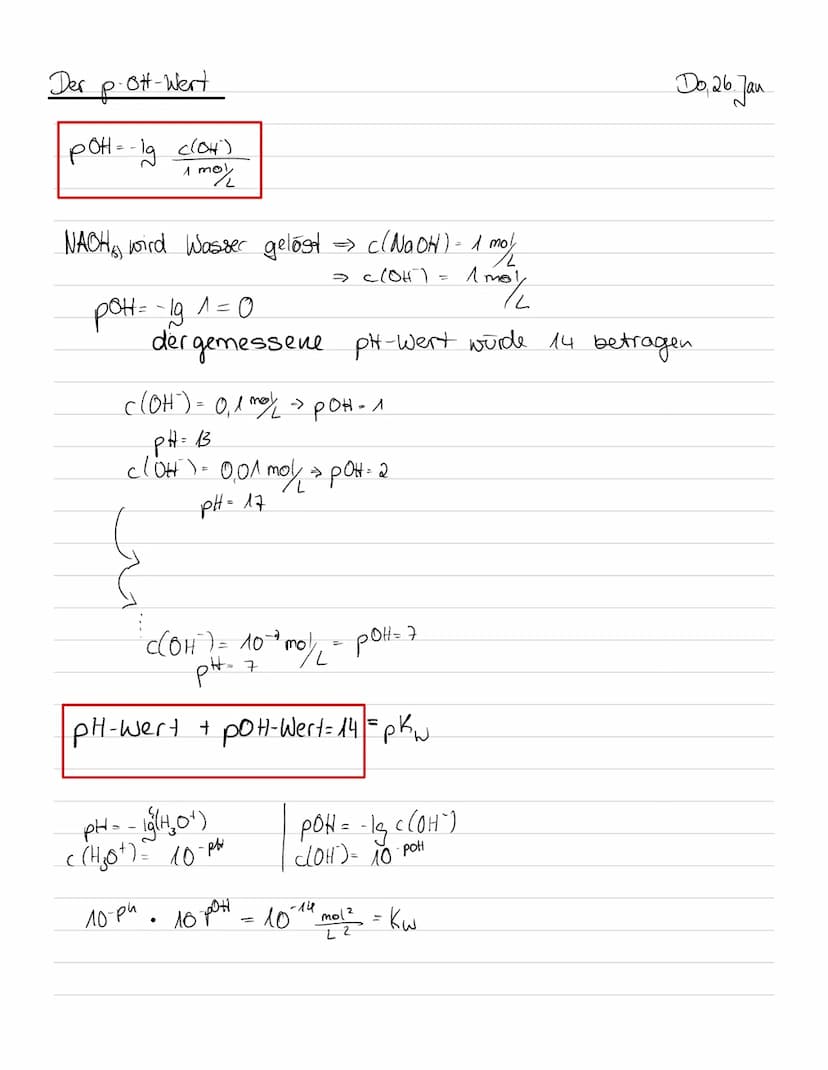 Der p-OH-Wert Do, 26. Jan
pOH = -lg c(OH⁻) / 1 mol/L
NAOH(s) wird Wasser gelöst ⇒ c(NaOH) = 1 mol/L
⇒ c(OH⁻) = 1 mol/L
pOH = -lg 1 = 0
der gemessene pH-Wert würde 14 betragen
c(OH⁻) = 0,1 mol/L → pOH = 1
pH = 13
c(OH⁻) = 0,01 mol/L ⇒ pOH = 2
pH = 17
⋮
c(OH⁻) = 10⁻⁷ mol/L = pOH = 7
pH = 7
pH-Wert + pOH-Wert = 14 = pKw
pH = -lg c(H₃O⁺) | pOH = -lg c(OH⁻)
c(H₃O⁺) = 10^-pH | c(OH⁻) = 10^-pOH
10^-pH · 10^-pOH = 10⁻¹⁴ mol²/L² = Kw